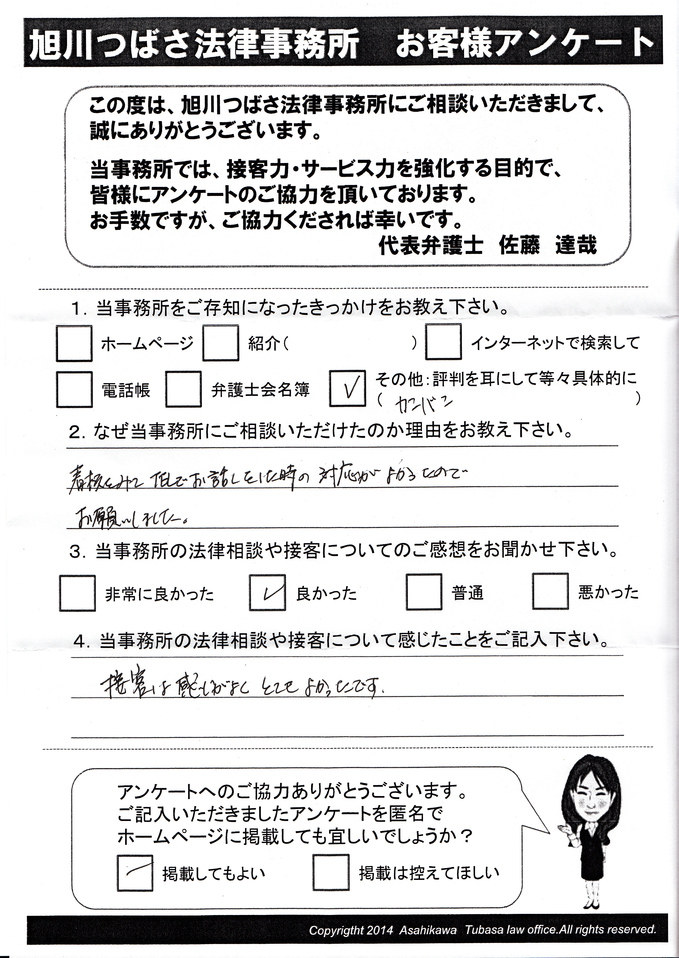 旭川つばさ法律事務所　お客様アンケート
この度は、旭川つばさ法律事務所にご相談いただきまして、
誠にありがとうございます。
当事務所では、接客力・サービス力を強化する目的で、
皆様にアンケートのご協力を頂いております。
お手数ですが、ご協力くだされば幸いです。
代表弁護士　佐藤　達哉
1．当事務所をご存知になったきっかけをお教え下さい。
ホームページ　紹介(　)　インターネットで検索して
電話帳　弁護士会名簿　✓　その他：評判を耳にして等々具体的に
(　カンバン　)
2．なぜ当事務所にご相談いただけたのか理由をお教え下さい。
看板をみて TELでお話しをした時の対応がよかったので
お願いしました。
3．当事務所の法律相談や接客についてのご感想をお聞かせ下さい。
非常に良かった　✓　良かった　普通　悪かった
4．当事務所の法律相談や接客について感じたことをご記入下さい。
接客は感じがよく とてもよかったです.
アンケートへのご協力ありがとうございます。
ご記入いただきましたアンケートを匿名で
ホームページに掲載しても宜しいでしょうか？
✓　掲載してもよい　掲載は控えてほしい
Copyrigtht 2014 Asahikawa Tubasa law office.All rights reserved.